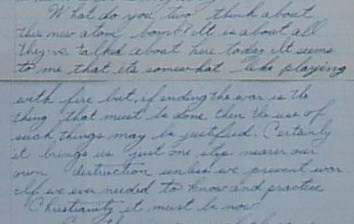 What do you two think about
this new atom bomb? It is about all
they've talked about here today. It seems
to me that its somewhat like playing
with fire but, if ending the war is the
thing that must be done then the use of
such things may be justified. Certainly
it brings us just one step nearer our
own destruction unless we prevent war.
If we ever needed to know and practice
Christianity it must be now